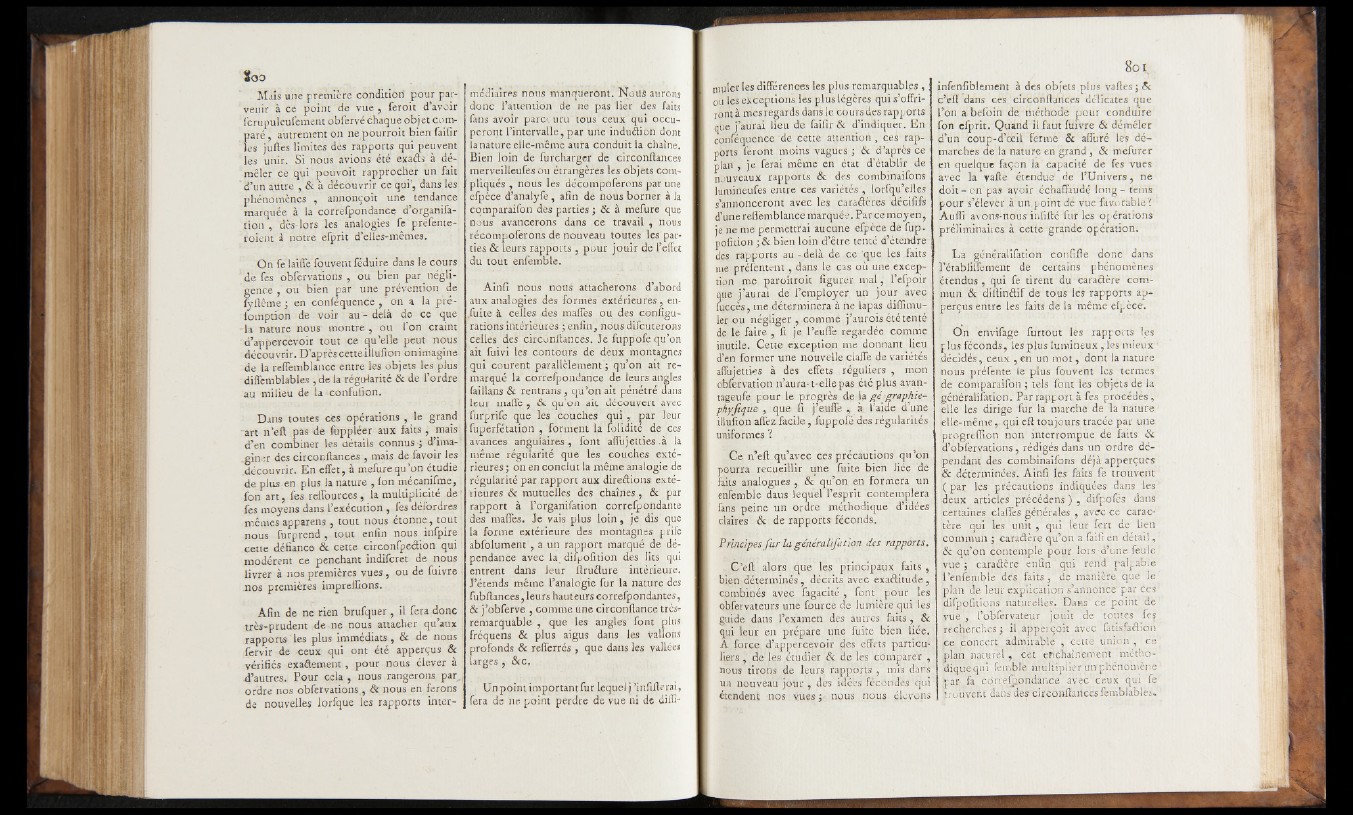 800
Mais une première condition pour par-
venir à ce point de vue, ſeroit d'avoir
ſcrupuleuſement obſervé chaque objet com-
paré, autrement on ne pourroit bien ſaiſir
les juſtes limites des rapports qui peuvent
les unir. Si nous avions été exacts à dé-
mêler ce qui pouvoit rapprocher un fait
d'un autre, & à découvrir ce qui, dans les
phénomènes, annonçoit une tendance
marquée à la correſpondance d'organiſa-
tion, dès-lors les analogies ſe préſente-
roient à notre eſprit d'elles-mêmes.
On ſe laiſſe ſouvent ſéduire dans le cours
de ſes obſervations, ou bien par négli-
gence, ou bien par une prévention de
ſyſtême; en conſéquence, on a la pré-
ſomption de voir au-delà de ce que
la nature nous montre, ou l'on craint
d'appercevoir tout ce qu'elle peut nous
découvrir. D'après cette illuſion on imagine
de la reſſemblance entre les objets les plus
diſſemblables, de la régularité & de l'ordre
au milieu de la confuſion.
Dans toutes ces opérations, le grand
art n'eſt pas de ſuppléer aux faits, mais
d'en combiner les détails connus; d'ima-
giner des circonſtances, mais de ſavoir les
découvrir. En effet, à meſure qu'on étudie
de plus en plus la nature, ſon mécaniſme,
ſon art, ſes reſſources, la multiplicité de
ſes moyens dans l'exécution, ſes déſordres
mêmes apparens, tout nous étonne, tout
nous ſurprend, tout enfin nous inſpire
cette défiance & cette circonſpection qui
modèrent ce penchant indiſcret de nous
livrer à nos premières vues, ou de ſuivre
nos premières impreſſions.
Afin de ne rien bruſquer, il ſera donc
très-prudent de ne nous attacher qu'aux
rapports les plus immédiats, & de nous
ſervir de ceux qui ont été apperçus &
vérifiés exactement, pour nous élever à
d'autres. Pour cela, nous rangerons par
ordre nos obſervations, & nous en ferons
de nouvelles lorſque les rapports inter-
médiaires nous manqueront. Nous aurons
donc l'attention de ne pas lier des faits
ſans avoir parcouru tous ceux qui occu-
peront l'intervalle, par une induction dont
la nature elle-même aura conduit la chaîne.
Bien loin de ſurcharger de circonſtances
merveilleuſes ou étrangères les objets com-
pliqués, nous les décompoſerons par une
eſpèce d'analyſe, afin de nous borner à la
comparaiſon des parties; & à meſure que
nous avancerons dans ce travail, nous
récompoſerons de nouveau toutes les par-
ties & leurs rapports, pour jouir de l'effet
du tout enſemble.
Ainſi nous nous attacherons d'abord
aux analogies des formes extérieures, en-
ſuite à celles des maſſes ou des configu-
rations intérieures; enfin, nous diſcuterons
celles des circonſtances. Je ſuppoſe qu'on
ait ſuivi les contours de deux montagnes
qui courent parallèlement; qu'on ait re-
marqué la correſpondance de leurs angles
ſaillans & rentrans, qu'on ait pénétré dans
leur maſſe, & qu'on ait découvert avec
ſurpriſe que les couches qui, par leur
ſuperfétation, forment la ſolidité de ces
avances angulaires, ſont aſſujetties à la
même régularité que les couches exté-
rieures; on en conclut la même analogie de
régularité par rapport aux directions exté-
rieures & mutuelles des chaînes, & par
rapport à l'organiſation correſpondante
des maſſes. Je vais plus loin, je dis que
la forme extérieure des montagnes priſe
abſolument, a un rapport marqué de dé-
pendance avec la diſpoſition des lits qui
entrent dans leur ſtructure intérieure.
J'étends même l'analogie ſur la nature des
ſubſtances, leurs hauteurs correſpondantes,
& j'obſerve, comme une circonſtance très-
remarquable, que les angles ſont plus
fréquens & plus aigus dans les vallons
profonds & reſſerrés, que dans les vallées
larges, &c.
Un point important ſur lequel j'inſiſterai,
ſera de ne point perdre de vue ni de diſſi-
801
muler les différences les plus remarquables,
ou les exceptions les plus légères qui s'offri-
ront à mes regards dans le cours des rapports
que j'aurai lieu de ſaiſir & d'indiquer. En
conſéquence de cette attention, ces rap-
ports ſeront moins vagues; & d'après ce
plan, je ſerai même en état d'établir de
nouveaux rapports & des combinaiſons
lumineuſes entre ces variétés, lorſqu'elles
s'annonceront avec les caractères déciſifs
d'une reſſemblance marquée. Par ce moyen,
je ne me permettrai aucune eſpèce de ſup-
poſition; & bien loin d'être tenté d'étendre
des rapports au-delà de ce que les faits
me préſentent, dans le cas où une excep-
tion me paroîtroit figurer mal, l'eſpoir
que j'aurai de l'employer un jour avec
ſuccès, me déterminera à ne la pas diſſimu-
ler ou négliger, comme j'aurois été tenté
de le faire, ſi je l'euſſe regardée comme
inutile. Cette exception me donnant lieu
d'en former une nouvelle claſſe de variétés
aſſujetties à des effets réguliers, mon
obſervation n'aura-t-elle pas été plus avan-
tageuſe pour le progrès de la géographie-
phyſique, que ſi j'euſſe, à l'aide d'une
illuſion aſſez facile, ſuppoſé des régularités
uniformes?
Ce n'eſt qu'avec ces précautions qu'on
pourra recueillir une ſuite bien liée de
faits analogues, & qu'on en formera un
enſemble dans lequel l'eſprit contemplera
ſans peine un ordre méthodique d'idées
claires & de rapports féconds.
Principes ſur la généraliſation des rapports.
C'eſt alors que les principaux faits,
bien déterminés, décrits avec exactitude,
combinés avec ſagacité, ſont pour les
obſervateurs une ſource de lumière qui les
guide dans l'examen des autres faits, &
qui leur en prépare une ſuite bien liée.
A force d'appercevoir des effets particu-
liers, de les étudier & de les comparer,
nous tirons de leurs rapports, mis dans
un nouveau jour, des idées fécondes qui
étendent nos vues; nous nous élevons
inſenſiblement à des objets plus vaſtes; &
c'eſt dans ces circonſtances délicates que
l'on a beſoin de méthode pour conduire
ſon eſprit. Quand il faut ſuivre & démêler
d'un coup-d'œil ferme & aſſuré les dé-
marches de la nature en grand, & meſurer
en quelque façon la capacité de ſes vues
avec la vaſte étendue de l'Univers, ne
doit-on pas avoir échaffaudé long-tems
pour s'élever à un point de vue favorable?
Auſſi avons-nous inſiſté ſur les opérations
préliminaires à cette grande opération.
La généraliſation conſiſte donc dans
l'établiſſement de certains phénomènes
étendus, qui ſe tirent du caractère com-
mun & diſtinctif de tous les rapports ap-
perçus entre les faits de la même eſpèce.
On enviſage ſurtout les rapports les
plus féconds, les plus lumineux, les mieux
décidés, ceux, en un mot, dont la nature
nous préſente le plus ſouvent les termes
de comparaiſon; tels ſont les objets de la
généraliſation. Par rapport à ſes procédés,
elle les dirige ſur la marche de la nature
elle-même, qui eſt toujours tracée par une
progreſſion non interrompue de faits &
d'obſervations, rédigés dans un ordre dé-
pendant des combinaiſons déjà apperçues
& déterminées. Ainſi les faits ſe trouvent
(par les précautions indiquées dans les
deux articles précédens), diſpoſés dans
certaines claſſes générales, avec ce carac-
tère qui les unit, qui leur ſert de lien
commun; caractère qu'on a ſaiſi en détail,
& qu'on contemple pour lors d'une ſeule
vue; caractère enfin qui rend palpable
l'enſemble des faits, de manière que le
plan de leur explication s'annonce par ces
diſpoſitions naturelles. Dans ce point de
vue, l'obſervateur jouit de toutes ſes
recherches; il apperçoit avec ſatisfaction
ce concert admirable, cette union, ce
plan naturel, cet enchaînement métho-
dique qui ſemble multiplier un phénomène
par ſa correſpondance avec ceux qui ſe
trouvent dans des circonſtances ſemblables.